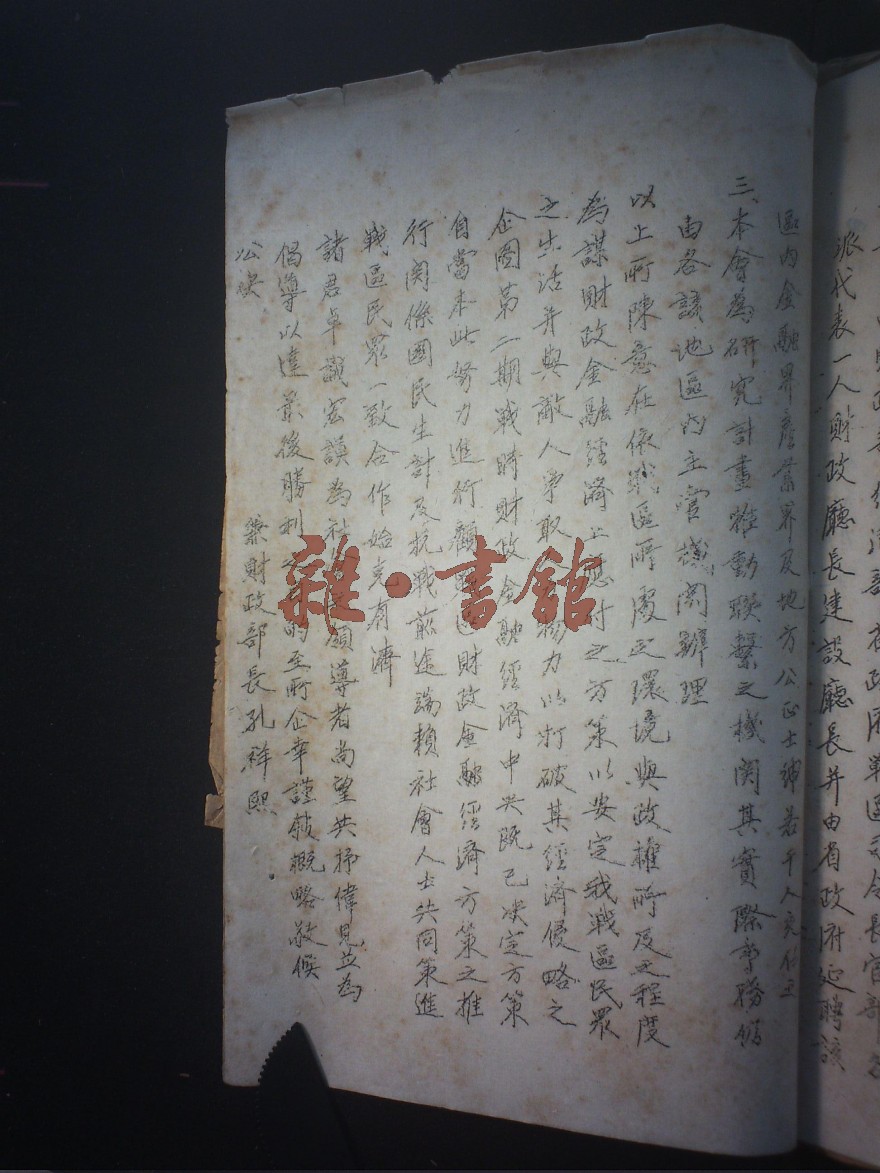 派代表一人財政廳長建設廳長并由省政府延聘該
區內金融界產業界及地方公正士紳若干人充任之
三、本會為研究計畫推動聯繫之機關其實際事務仍
由各該地區內主管機關辦理
以上所陳意在依戰區所處之環境與政權所及之程度
為謀財政金融經濟上應付之方策以安定我戰區民眾
之生活并與敵人爭取 物力以打破其經濟侵略之
企圖第二期戰時財政金融經濟中央既已決定方策
自當本此努力進行顧 區財政金融經濟方策之推
行関係國民生計及抗戰前途端賴社會人士共同策進
戰區民眾一致合作始克有濟
諸君卓識宏謨為社 領導者尚望共抒偉見並為
倡導以達最後勝利 至所企幸謹敍概略敬候
公決
兼財政部長孔祥熙
雜·書館